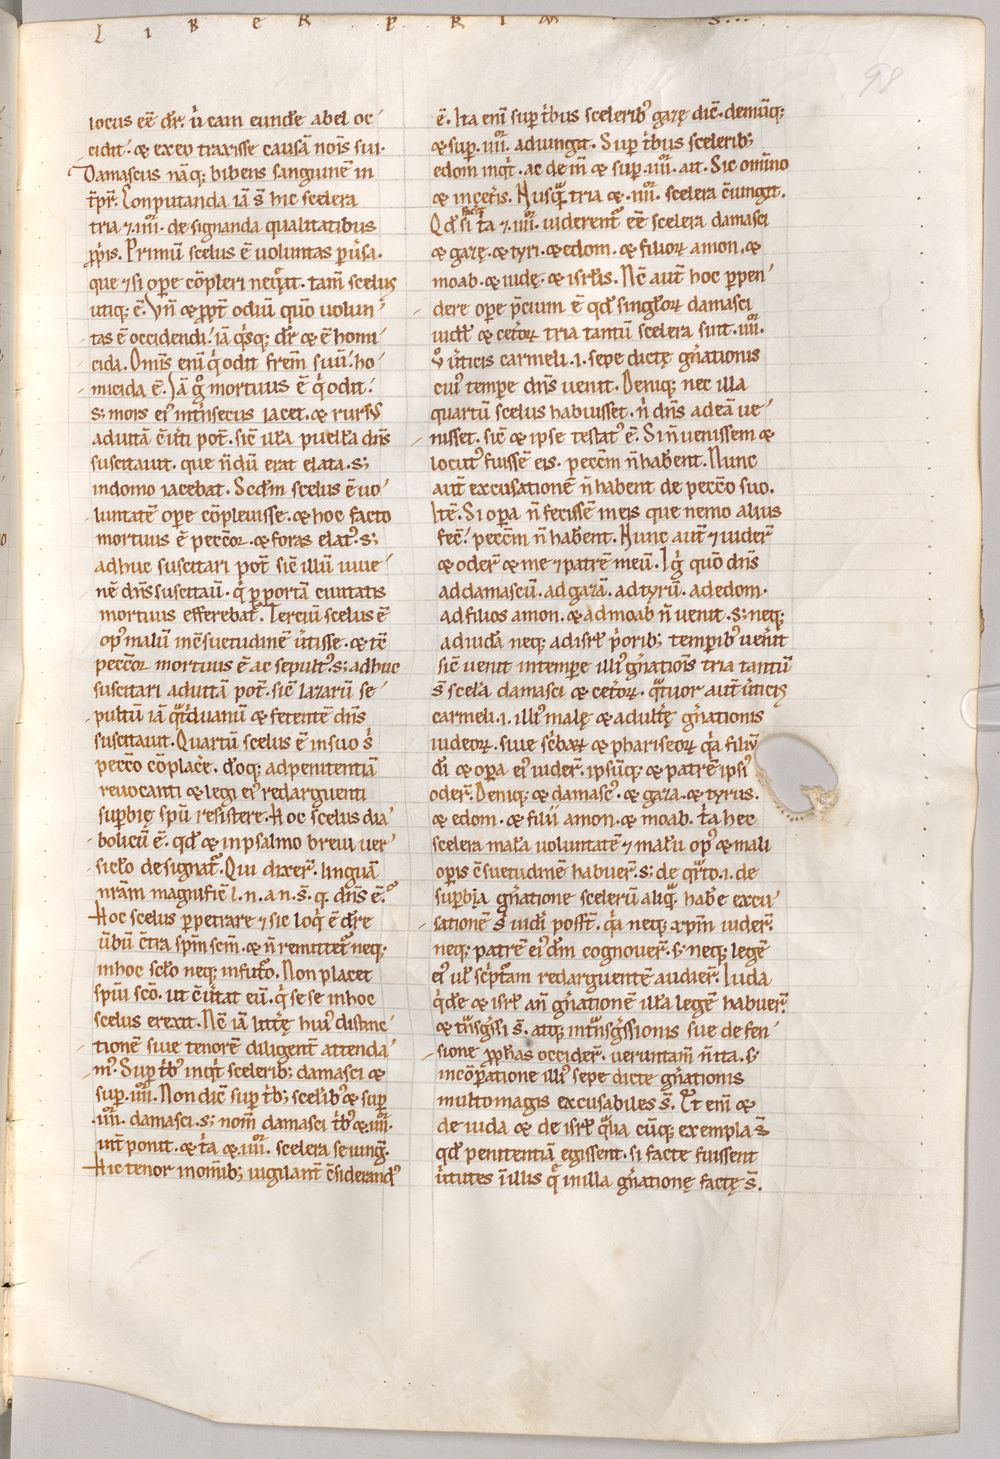 LIBER PRIMVS...
98
locus eē dr̄. ů cain eund̄e abel oc
cidit. & ex eo traxisse causā nōis sui.
Damascus nāq; bibens sanguinē in
t̄pr̄. Conputanda iā s̄ hic scelera
tria ⁊ .iiii. de signanda qualitatibus
p̱p̱iis. Primū scelus ē uoluntas p̱ůsa.
que ⁊ si op̱e cōpleri neqͣt. tam̄ scelus
utiq; ē. Vn̄ & p̱p̱t odiū quo uolun
tas ē occidendi. iā qͥsq; dr̄ & ē homi
cida. Omīs eni qͥ odit fr̄em suū. ho
micida ē. Iā gͦ mortuus ē qͥ odit.
s; mors eiꝰ int̄nsecus iacet. & rursꝰ
ad uitā c̄ůti pot̄. sic̄ illa puella dn̄s
suscitauit. que n̄dū erat elata. s;
in domo iacebat. Scd̄m scelus ē uo
luntatē op̱e cōpleuisse. & hoc facto
mortuus ē pecc̄or. & foras elatꝰ. s;
adhuc suscitari pot̄ sic̄ illū iuue
nē dn̄s suscitauit. qͥ p̱ portā ciuitatis
mortuus efferebat̄. Terciū scelus ē
opꝰ malū in c̄suetudinē ůtisse. & t̄c
pecc̄or mortuus ē ac sepultꝰ. s; adhuc
suscitari ad uitā pot̄. sic̄ lazarū se
pultū iā qͣt̄duanū & fetentē dn̄s
suscitauit. Quartū scelus ē in suo s̄
pecc̄o cōplac̄e. d̄oq; ad penitentiā
reuocanti & legi eiꝰ redarguenti
sup̱bię sp̄u resistere. Hoc scelus dia
bolicū ē. qd̄ & in psalmo breui uer
siclo designat̄. Qui dixer̄. linguā
nr̄am magnific̄ l. n. a. n. s̄. q. dn̄s ē.
Hoc scelus p̱petrare ⁊ sic loqͥ ē dic̄re
ůbū c̄tra sp̄m sc̄m. & n̄ remittet̄ neq;
in hoc sc̄lo neq; in futͦo. Non placet
sp̄ui sc̄o. ut c̄ůtat eū. qͥ se se in hoc
scelus erexit. Nc̄ iā littę̄ huiꝰ distinc
tionē siue tenorē diligent̄ attenda
mꝰ. Sup̱ tͥbꝰ inqͥt scelerib; damasci &
sup̱ .iiii. Non dic̄ sup̱ tͥb; sceleribꝰ & sup̱
.iiii. damasci. s; nom̄ damasci tͥbꝰ & .iiii.
int̄ponit. & tͥa & .iiii. scelera seiunḡ.
Hic tenor in om̄ib; uigilant̄ c̄siderandꝰ
ē. Ita eni sup̱ tͥbus sceleribꝰ gazę dic̄. deniq;
& sup̱ .iiii. adiungit. Sup̱ tͥbus scelerib;
edom inqͥt. ac dein̄ & sup̱ .iiii. ait. Sic om̄ino
& in cet̄is. Nusqͣ tria & .iiii. scelera c̄iungit.
Qd̄ si tͥa ⁊ .iiii. uiderent̄ eē scelera damasci
& gazę. & tyri. & edom. & filioꝝ amon. &
moab. & iudę. & isrlis. Nc̄ aut̄ hoc p̱pen
dere op̱e p̄cium ē qd̄ singloꝝ damasci
uidel̄ & cet̄oꝝ tria tantū scelera sint. iiii.
ů ůticis carmeli .i. sepe dictę gn̄ationis
cuiꝰ temp̱e dn̄s uenit. Deniq; nec illa
quartū scelus habuisset. n̄ dn̄s ad eā ue
nisset. sic̄ & ipse testatꝰ ē. Si n̄ uenissem &
locutꝰ fuissē eis. pecc̄m n̄ hab̄ent. Nunc
aut̄ excusationē n̄ habent de pecc̄o suo.
Itē. Si op̱a n̄ fecissē in eis que nemo alius
fec̄. pecc̄m n̄ hab̄ent. Nunc aut̄ ⁊ uider̄
& oder̄ & me ⁊ patrē meū. Igͥ quo dn̄s
ad damascū. ad gazā. ad tyrū. ad edom.
ad filios amon. & ad moab n̄ uenit. s; neq;
ad iudā neq; ad isrl̄ p̱orib; temporibꝰ uen̄it
sic̄ uenit in temp̱e illiꝰ gn̄ationis tria tantū
s̄ scela damasci & cet̄oꝝ. qͣtuor aut̄ ůticis
carmeli .i. illiꝰ malę & adult̄ę gn̄ationis
iudeoꝝ. siue sc̄baꝝ & phariseoꝝ qͥa filiū
dī & op̱a eiꝰ uider̄. ipsūq; & patrē ipsiꝰ
oder̄. Deniq; & damascꝰ. & gaza. & tyrus.
& edom. & filii amon. & moab. tͥa hec
scelera mala uoluntatē ⁊ malū opꝰ & mali
op̱is c̄suetudinē habuer̄. s; de qͣrto .i. de
sup̱bia gn̄atione scelerū aliqͣ. hab̄e excu
sationē s̄ iudī poss̄t. qͥa neq; xp̄m uider̄.
neq; patrē eiꝰ dm̄ cognouer̄. s; neq; legē
eiꝰ ul̄ sc̄ptͣam redarguentē audier̄. Iuda
qͥd̄e & isrl̄ an̄ gn̄ationē illa legē habuer̄.
& tͣnsḡssi s̄. atq; in tͣnsḡssionis sue defen
sione p̱p̱h̄as occider̄. ueruntam̄ n̄ ita. s;
in cōp̱atione illiꝰ sepe dicte gn̄ationis
multo magis excusabiles s̄. Et eni &
de iuda & de isrl̄ qͥlia cūq; exempla s̄
qd̄ penitentiā egissent. si facte fuissent
ůtutes in illis qͤ in illa gn̄atione factę s̄.